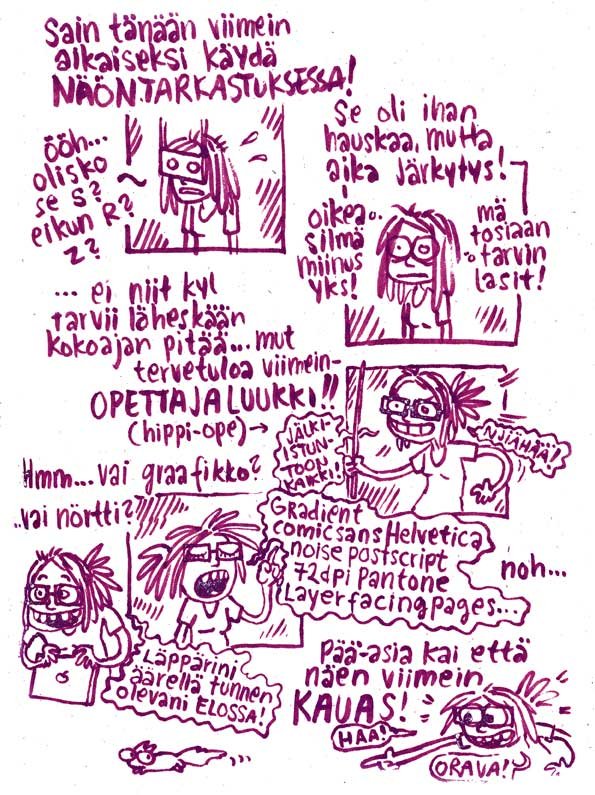 Sain tänään viimein
aikaiseksi käydä
NÄÖNTARKASTUKSESSA!
ööh...
olisko
se S?
eikun R?
Z?
Se oli ihan
hauskaa, mutta
aika järkytys!
oikea
silmä
miinus
yks!
mä
tosiaan
tarvin
lasit!
... ei niit kyl
tarvii läheskään
kokoajan pitää... mut
tervetuloa viimein-
OPETTAJALUUKKI!!
(hippi-ope)→
JÄLKI-
ISTUN-
TOON
KAIKKI!!
NJIÄHÄÄ!
Hmm... vai graafikko?
..vai nörtti?
Gradient
comic sans Helvetica
noise postscript
72dpi Pantone
Layer facing pages...
noh...
Läppärini
äärellä tunnen
olevani ELOSSA!
Pää-asia kai että
näen viimein
KAUAS!
HAA!
ORAVA!